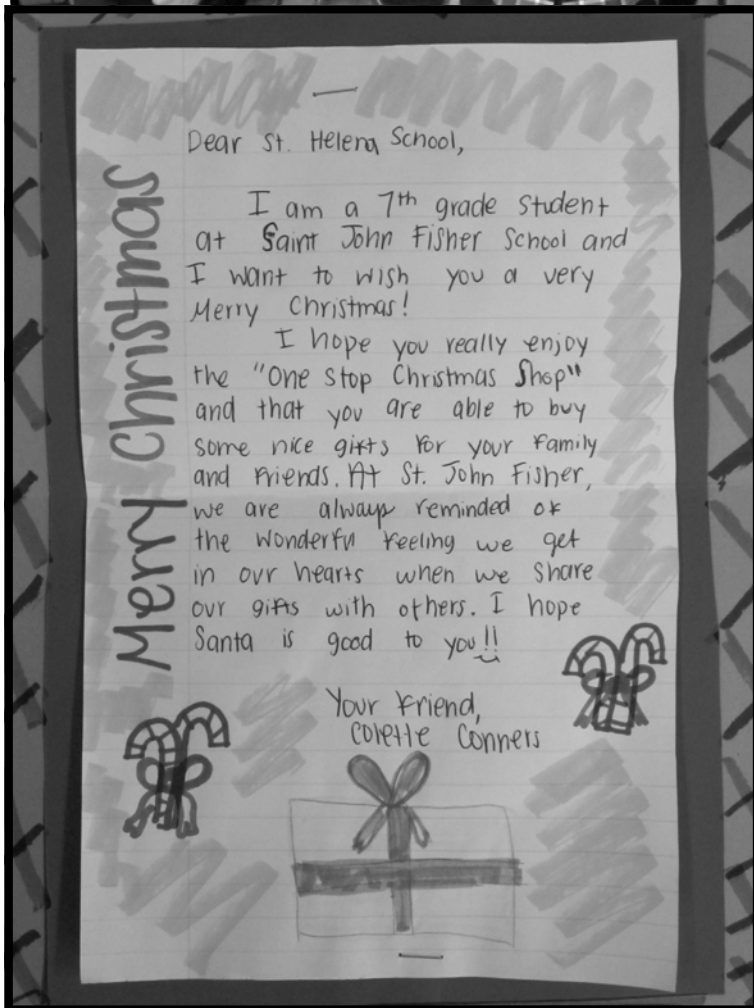 Merry Christmas
Dear St. Helena School,
I am a 7th grade student
at Saint John Fisher School and
I want to wish you a very
Merry Christmas!
I hope you really enjoy
the "One Stop Christmas Shop"
and that you are able to buy
some nice gifts for your family
and friends. At St. John Fisher,
we are always reminded of
the wonderful feeling we get
in our hearts when we share
our gifts with others. I hope
Santa is good to you!!
Your Friend,
Colette Conners